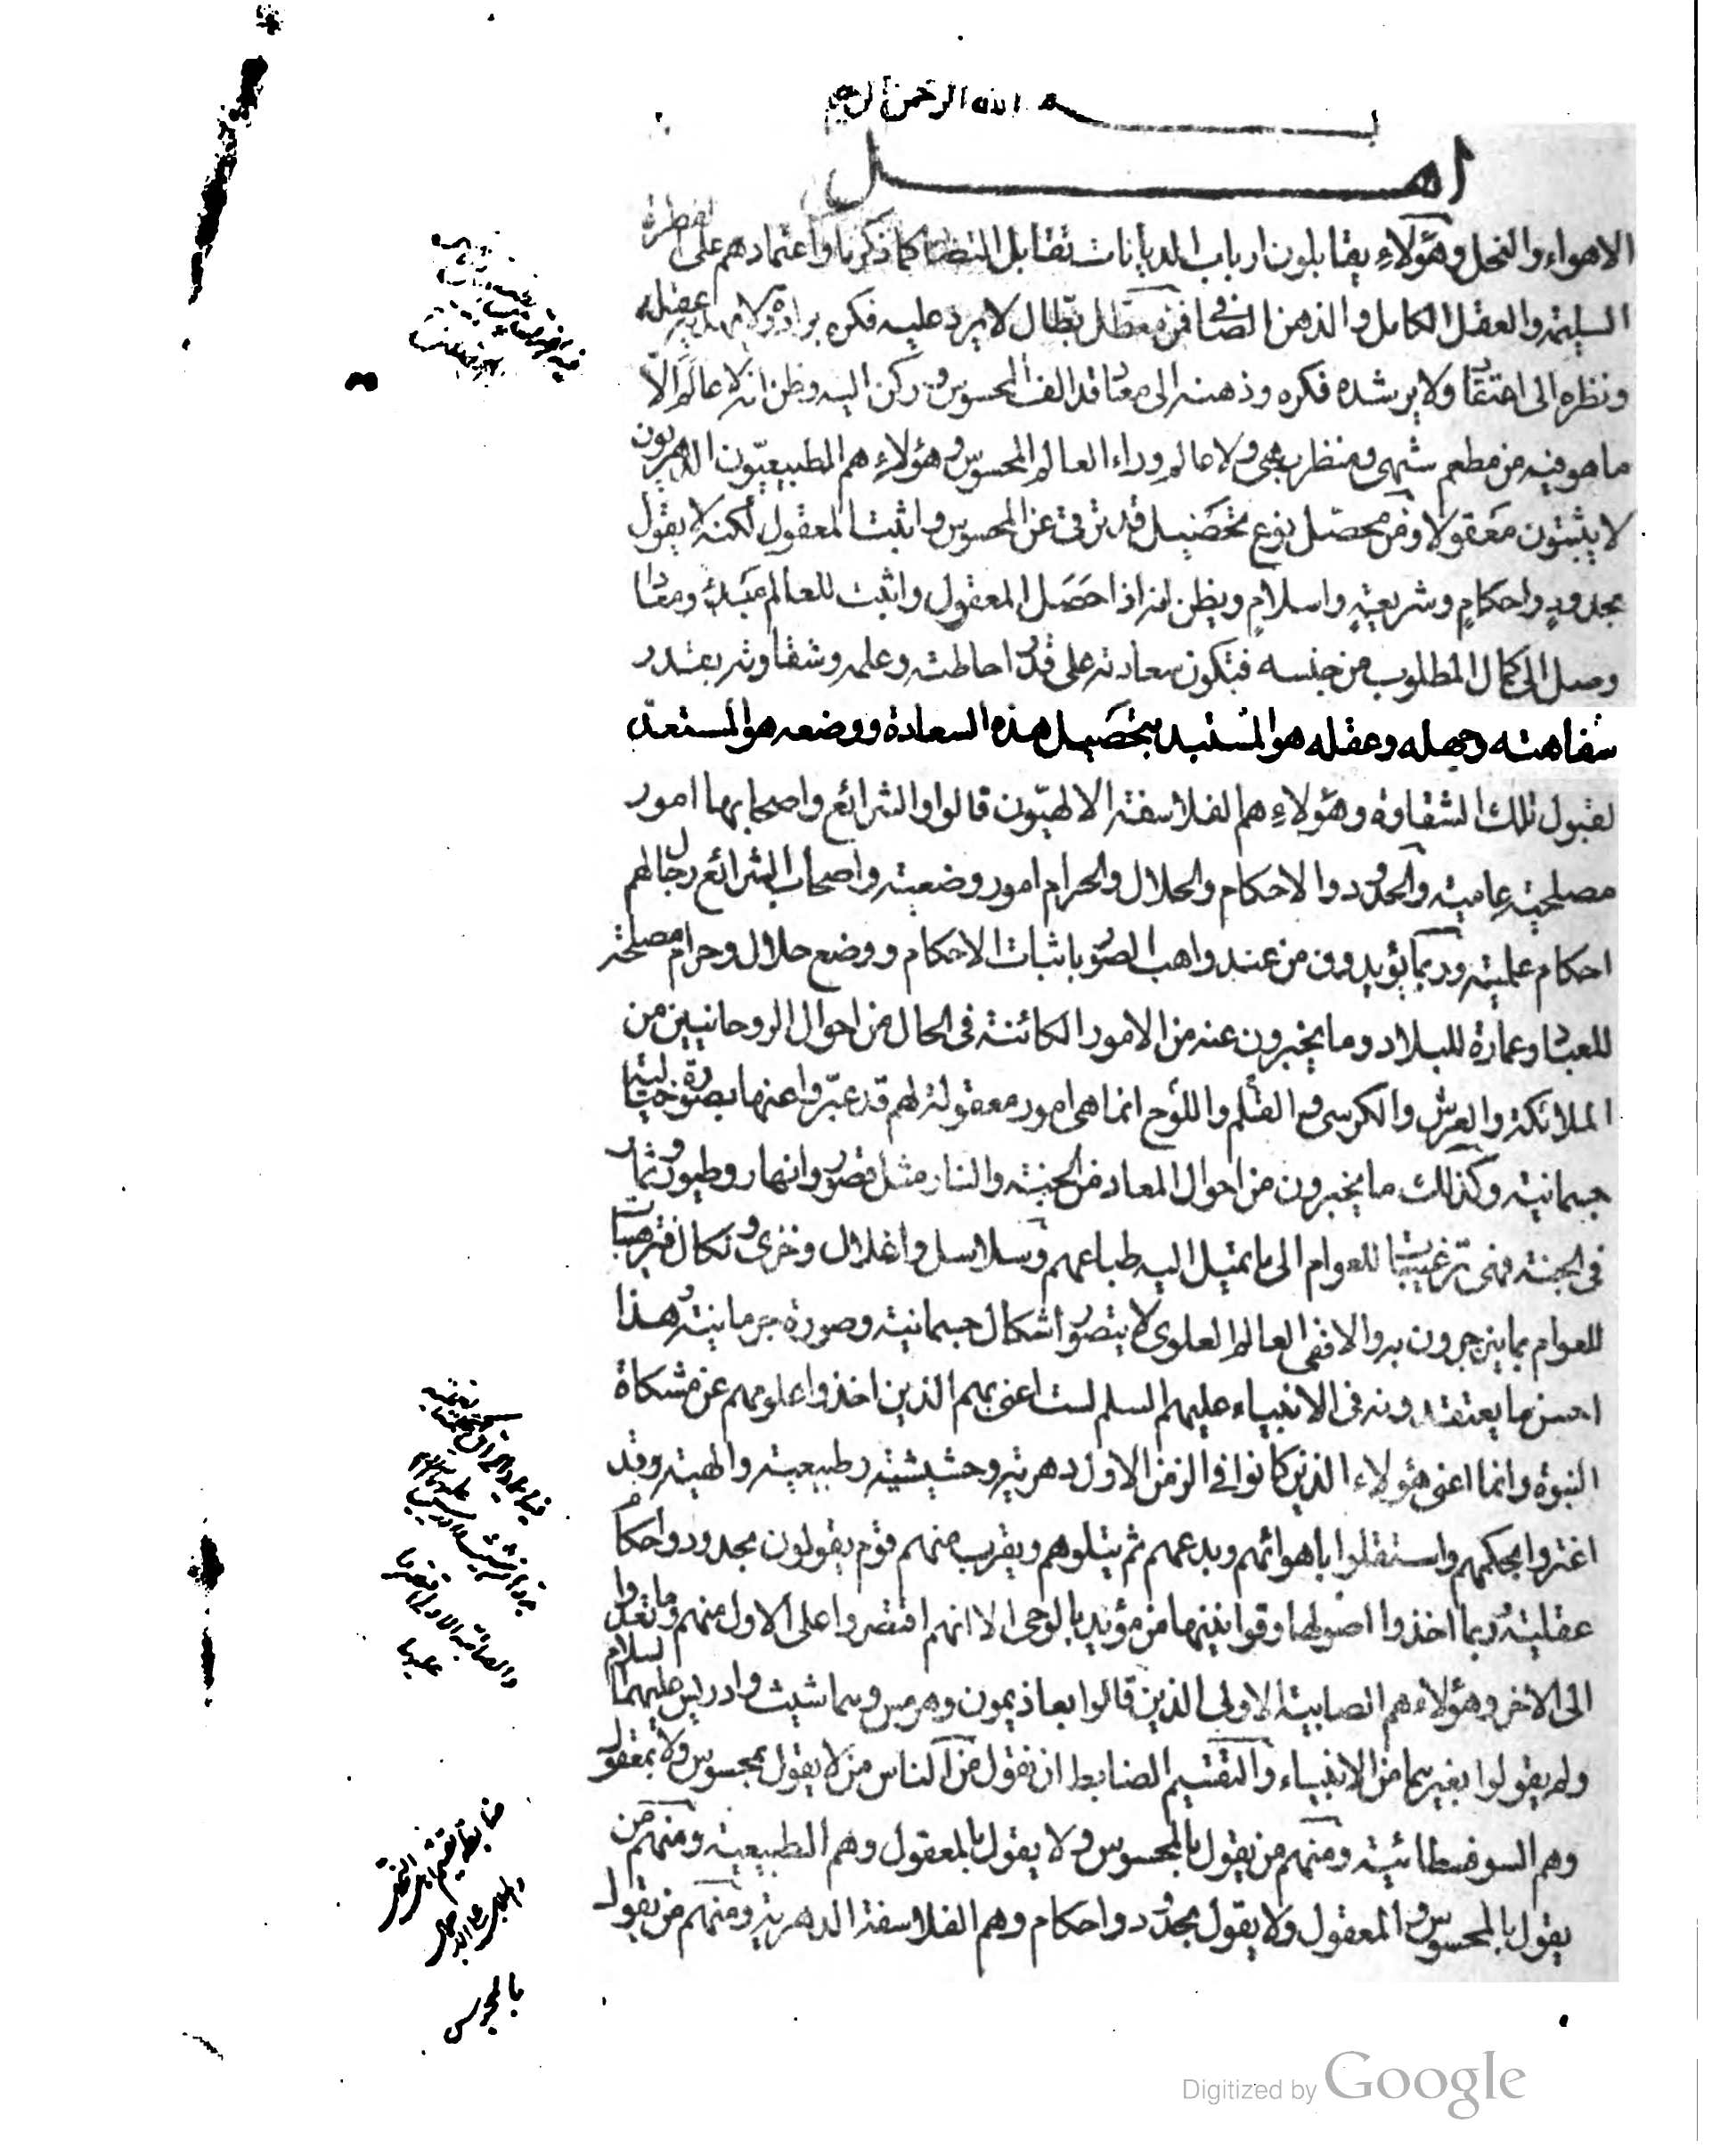 بسم الله الرحمن الرحيم
اهل
الاهواء والنحل وهؤلاء يقابلون ارباب الديانات تقابل التضاد كما ذكرنا واعتمادهم على الفطرة
السليمة والعقل الكامل والذهن الصافى فمن معطل بطال لا يرد عليه فكره براده ولا يهديه عقله
ونظره الى اعتقاد ولا يرشده فكره وذهنه الى معاد قد الف المحسوس وركن اليه وظن انه لا عالم الا
ما هو فيه من مطعم شهى ومنظر بهى ولا عالم وراء العالم المحسوس وهؤلاء هم الطبيعيون الدهريون
لا يثبتون معقولا ومن محصل نوع تحصيل قد ترقى عن المحسوس واثبت المعقول لكنه لا يقول
بحدود واحكام وشريعة واسلام ويظن انه اذا حصل المعقول واثبت للعالم مبدأ ومعادا
وصل الى الكمال المطلوب من جنسه فتكون سعادته على قدر احاطته وعلمه وشقاوته بقدر
سفاهته وجهله وعقله هو المستبد بتحصيل هذه السعادة ووضعه هو المستعد
لقبول تلك الشقاوة وهؤلاء هم الفلاسفة الالهيون قالوا والشرائع واصحابها امور
مصلحية عامية والحدود والاحكام والحلال والحرام امور وضعية واصحاب الشرائع رجال لهم
احكام علمية وربما يؤيدون من عند واهب الصور باثبات الاحكام ووضع حلال وحرام مصلحة
للعباد وعمارة للبلاد وما يخبرون عنه من الامور الكائنة فى الحال من احوال الروحانيين من
الملائكة والعرش والكرسى والقلم واللوح انما هى امور معقولة لهم قد عبروا عنها بصورة خيالية
جسمانية وكذلك ما يخبرون من احوال المعاد من الجنة والنار مثل قصور وانهار وطيور وثمار
فى الجنة فهى ترغيبات للعوام الى ما تميل اليه طباعهم وسلاسل واغلال وخزى ونكال فترهيبات
للعوام بما ينزجرون به والا ففى العالم العلوى لا يتصور اشكال جسمانية وصورة جرمانية وهذا
احسن ما يعتقدونه فى الانبياء عليهم السلم لست اعنى بهم الذين اخذوا علومهم عن مشكاة
النبوة وانما اعنى هؤلاء الذين كانوا فى الزمن الاول دهرية وحشيشية وطبيعية والهية وقد
اغتروا بحكمهم واستقلوا باهوائهم وبدعهم ثم يتلوهم ويقرب منهم قوم يقولون بحدود واحكام
عقلية وربما اخذوا اصولها وقوانينها من مؤيد بالوحى الا انهم اقتصروا على الاول منهم وما تعدوا
الى الاخر وهؤلاء هم الصابية الاولى الذين قالوا بعاذيمون وهرمس وهما شيث وادريس عليهما السلام
ولم يقولوا بغيرهما من الانبياء والتقسيم الضابط ان نقول من الناس من لا يقول بمحسوس ولا بمعقول
وهم السوفسطائية ومنهم من يقول بالمحسوس ولا يقول بالمعقول وهم الطبيعية ومنهم من
يقول بالمحسوس والمعقول ولا يقول بحدود واحكام وهم الفلاسفة الدهرية ومنهم من يقول
Digitized by Google